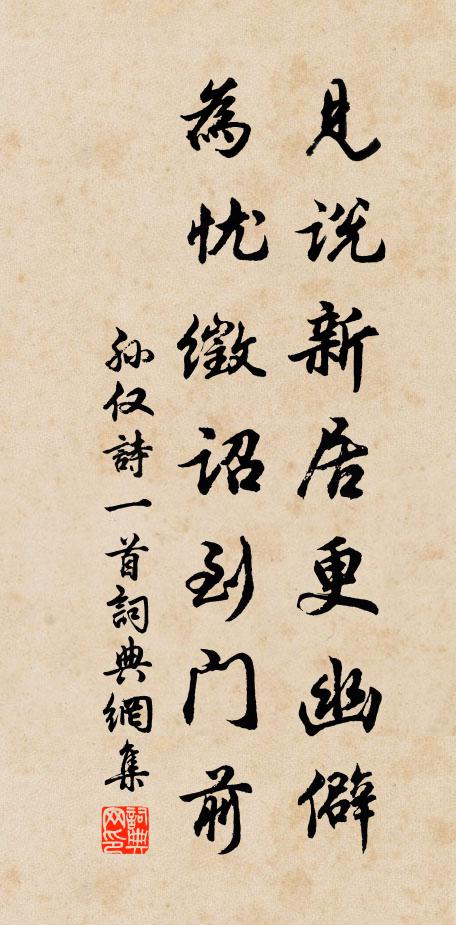 见说新居更幽僻
為忧徵诏到门前
孙仅詩一首詞典網集
詞典网印